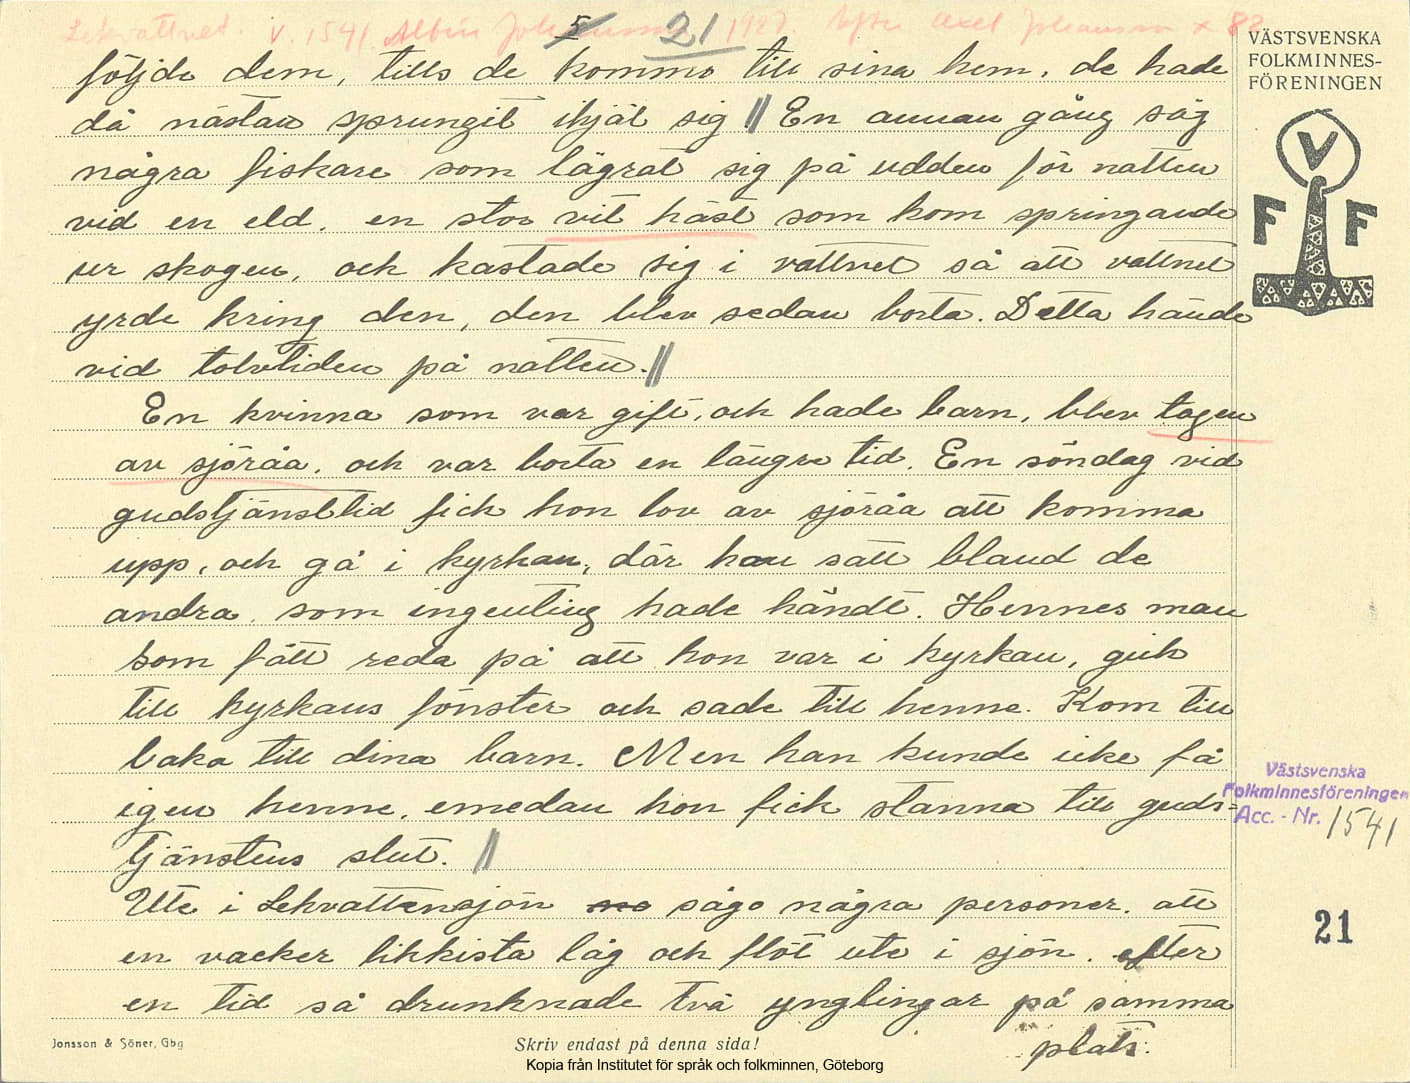 Lekvattnet. V. 1541 Albin Johansson 1927. Efter Axel Johansson x 82
5 21
följde dem, tills de kommo till sina hem, de hade
då nästan sprungit ihjäl sig || En annan gång såg
några fiskare som lägrat sig på udden för natten
vid en eld, en stor vit häst som kom springande
ur skogen, och kastade sig i vattnet så att vattnet
yrde kring den, den blev sedan borta. Detta hände
vid tolvtiden på natten. ||
En kvinna som var gift, och hade barn, blev tagen
av sjöråa, och var borta en längre tid. En söndag vid
gudstjänsttid fick hon lov av sjöråa att komma
upp, och gå i kyrkan, där hon satt bland de
andra, som ingenting hade händt. Hennes man
som fått reda på att hon var i kyrkan, gick
till kyrkans fönster och sade till henne. Kom till
baka till dina barn. Men han kunde icke få
igen henne, emedan hon fick stanna till guds-
tjänstens slut. ||
Ute i Lekvattensjön sågo några personer, att
en vacker likkista låg och flöt ute i sjön, efter
en tid så drunknade två ynglingar på samma
plats.
VÄSTSVENSKA
FOLKMINNES-
FÖRENINGEN
V
F F
Västsvenska
Folkminnesföreningen
Acc. - Nr. 1541
21
Jonsson & Söner, Gbg
Skriv endast på denna sida!
Kopia från Institutet för språk och folkminnen, Göteborg